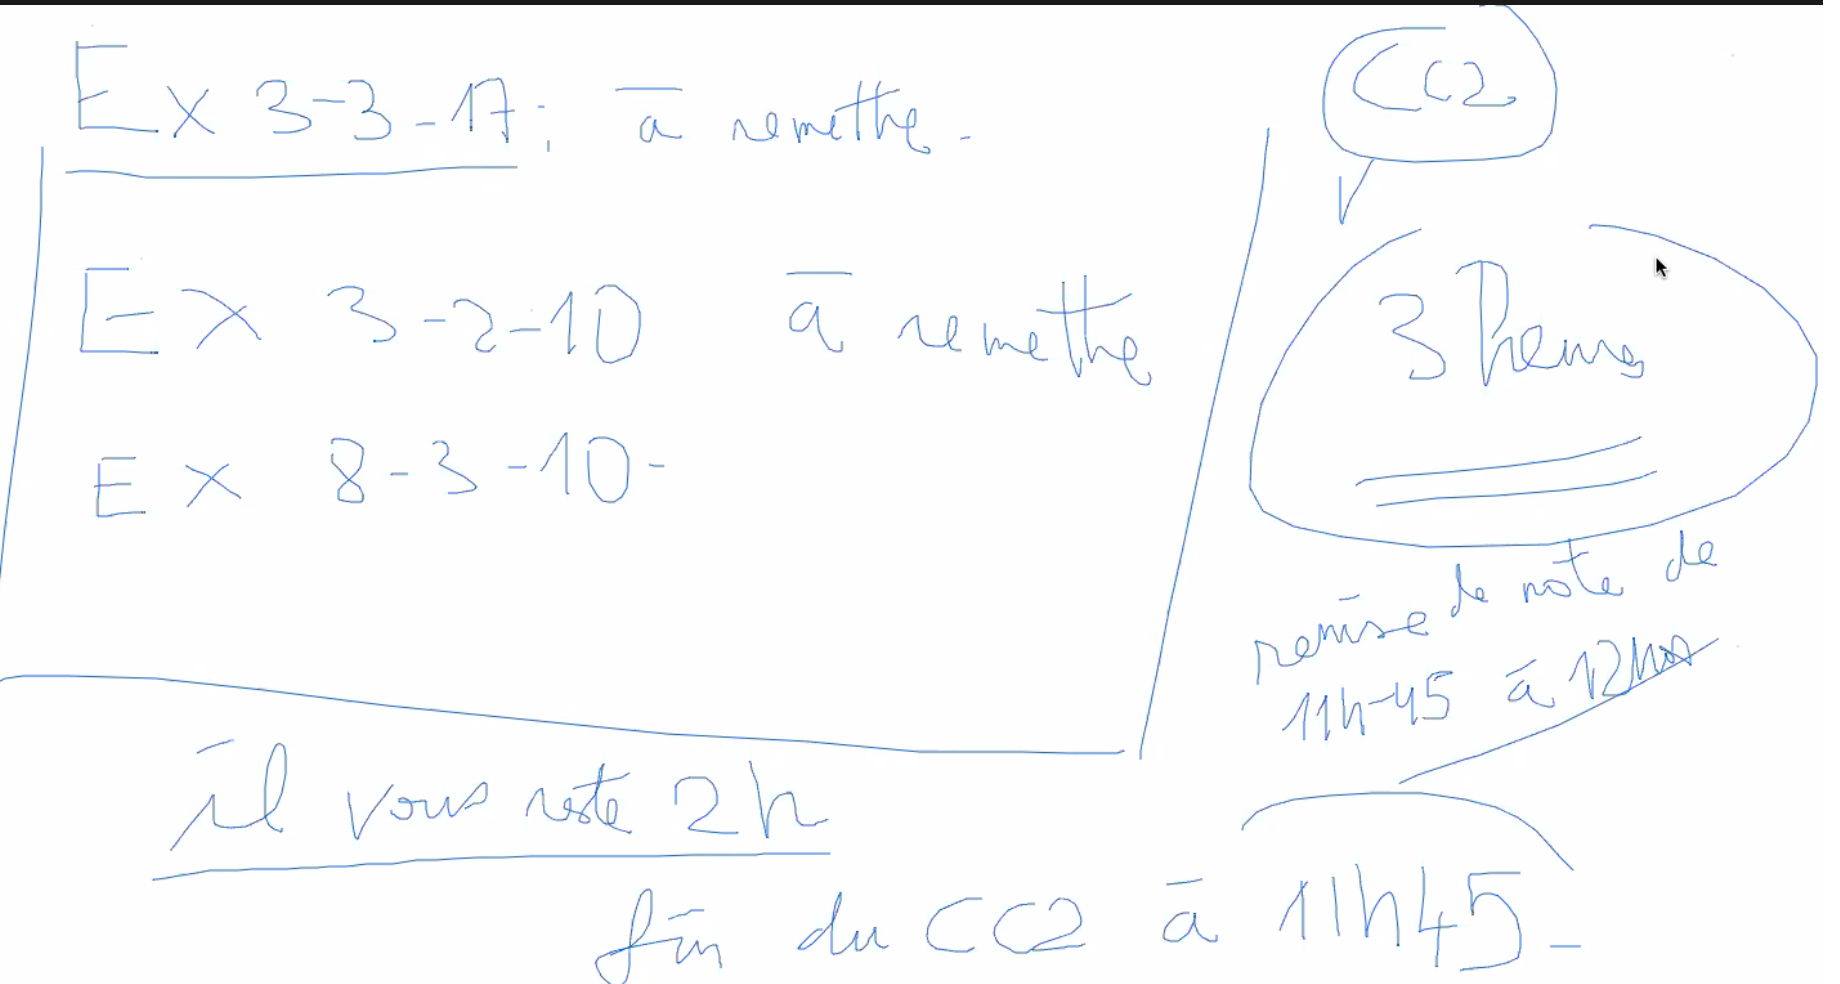 Ex 3-3-17 : à remettre.
Ex 3-2-10 à remettre
Ex 8-3-10-
CC2
3 heures
remise de note de
11h-45 à 12h
il vous reste 2h
fin du CC2 à 11h45-